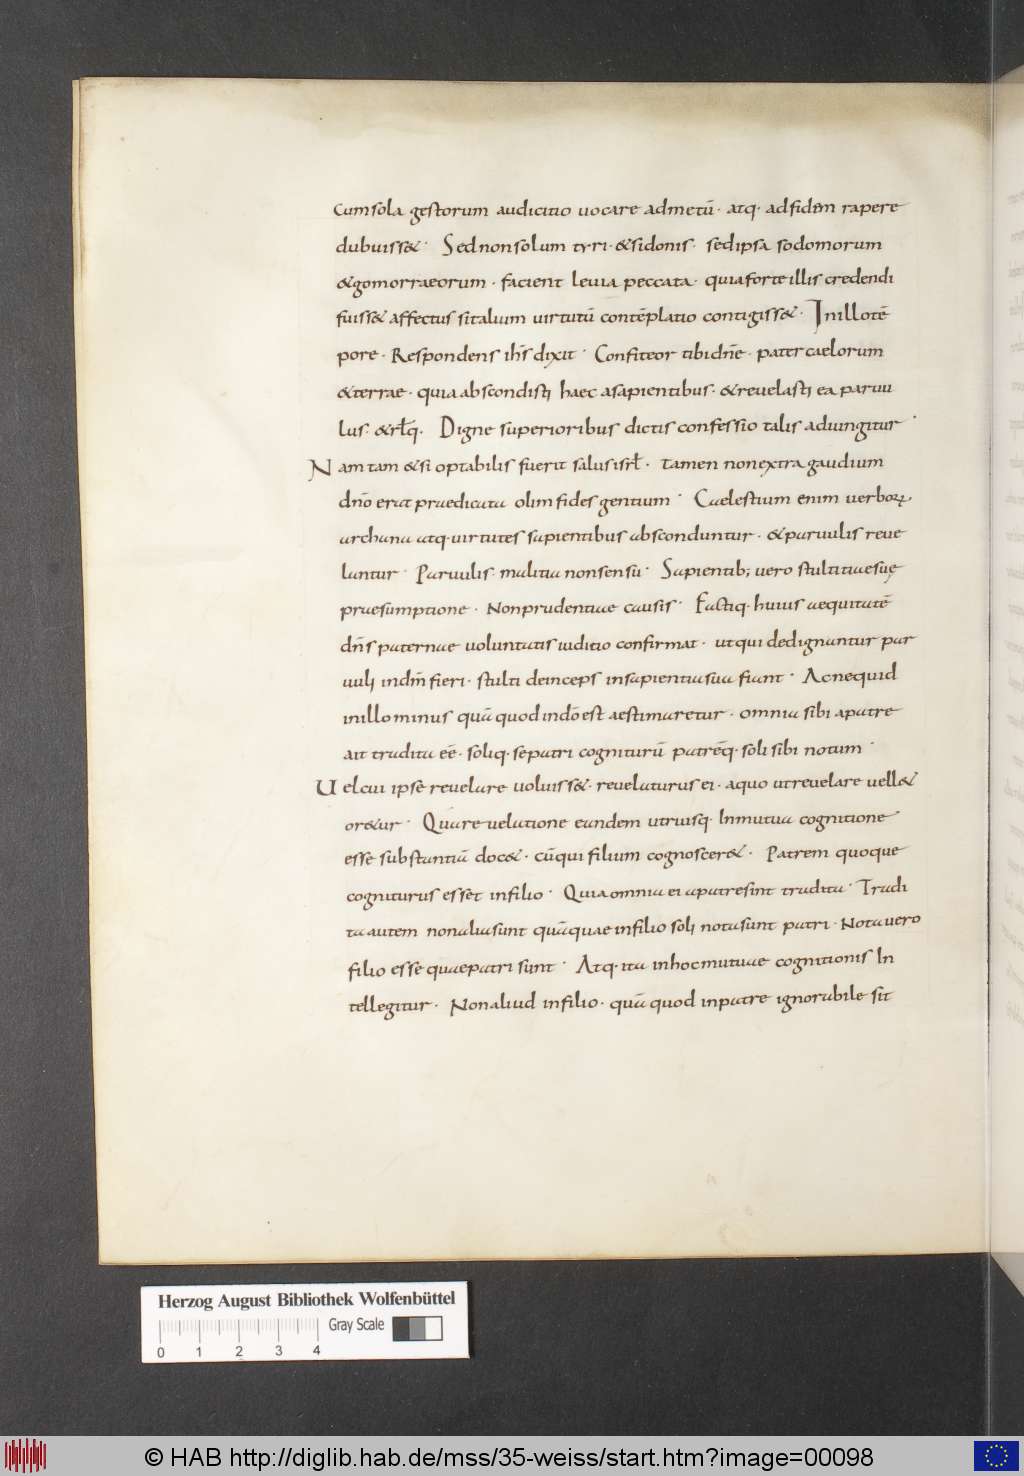 Cum sola gestorum audicitio uocare admetū· atq· adfidem rapere
dubuiss&· Sed non solum tyri· &sidonis· sed ipsa sodomorum
&gomorraeorum· facient leuia peccata· quia forte illis credendi
fuiss& affectus si talium uirtutū contēplatio contigiss&· Inillotē
pore· Respondens ih̄s dixit· Confiteor tibi dn̄e· pater caelorum
&terrae· quia abscondisti haec asapientibus· &reuelasti ea paruu
lus· &rłq· Digne superioribus dictis confessio talis adiungitur·
Nam tam &si optabilis fuerit salus isrł· tamen non extra gaudium
dn̄o erat praedicata olim fides gentium· Caelestium enim uerboꝝ
archana atq· uirtutes sapientibus absconduntur· &paruulis reue
lantur· Paruulis malitia non sensu· Sapientib; uero stultitiae suę
praesumptione· Non prudentiae causis· Factiq· huius aequitatē
dn̄s paternae uoluntatis iuditio confirmat· ut qui dedignantur par
uuli indm̄ fieri· stulti deinceps insapientia sua fiant· Ac nequid
inillo minus quā quod indō est aestimaretur· omnia sibi apatre
ait tradita eē· soliq· se patri cogniturū patrēq· soli sibi notum·
Uel cui ipse reuelare uoluiss&· reuelaturus ei· aquo ut reuelare uell&
or&ur· Qua reuelatione eandem utruisq· Inmutua cognitione
esse substantiā doc&· cūqui filium cognoscer&· Patrem quoque
cogniturus esset infilio· Quia omnia ei apatre sint tradita· Tradi
ta autem non alia sunt quā quae infilio soli nota sunt patri· Nota uero
filio esse quae patri sunt· Atq· ita inhoc mutuae cognitionis In
tellegitur· Non aliud infilio· quā quod inpatre ignorabile sit
Herzog August Bibliothek Wolfenbüttel
Gray Scale
0 1 2 3 4
© HAB http://diglib.hab.de/mss/35-weiss/start.htm?image=00098